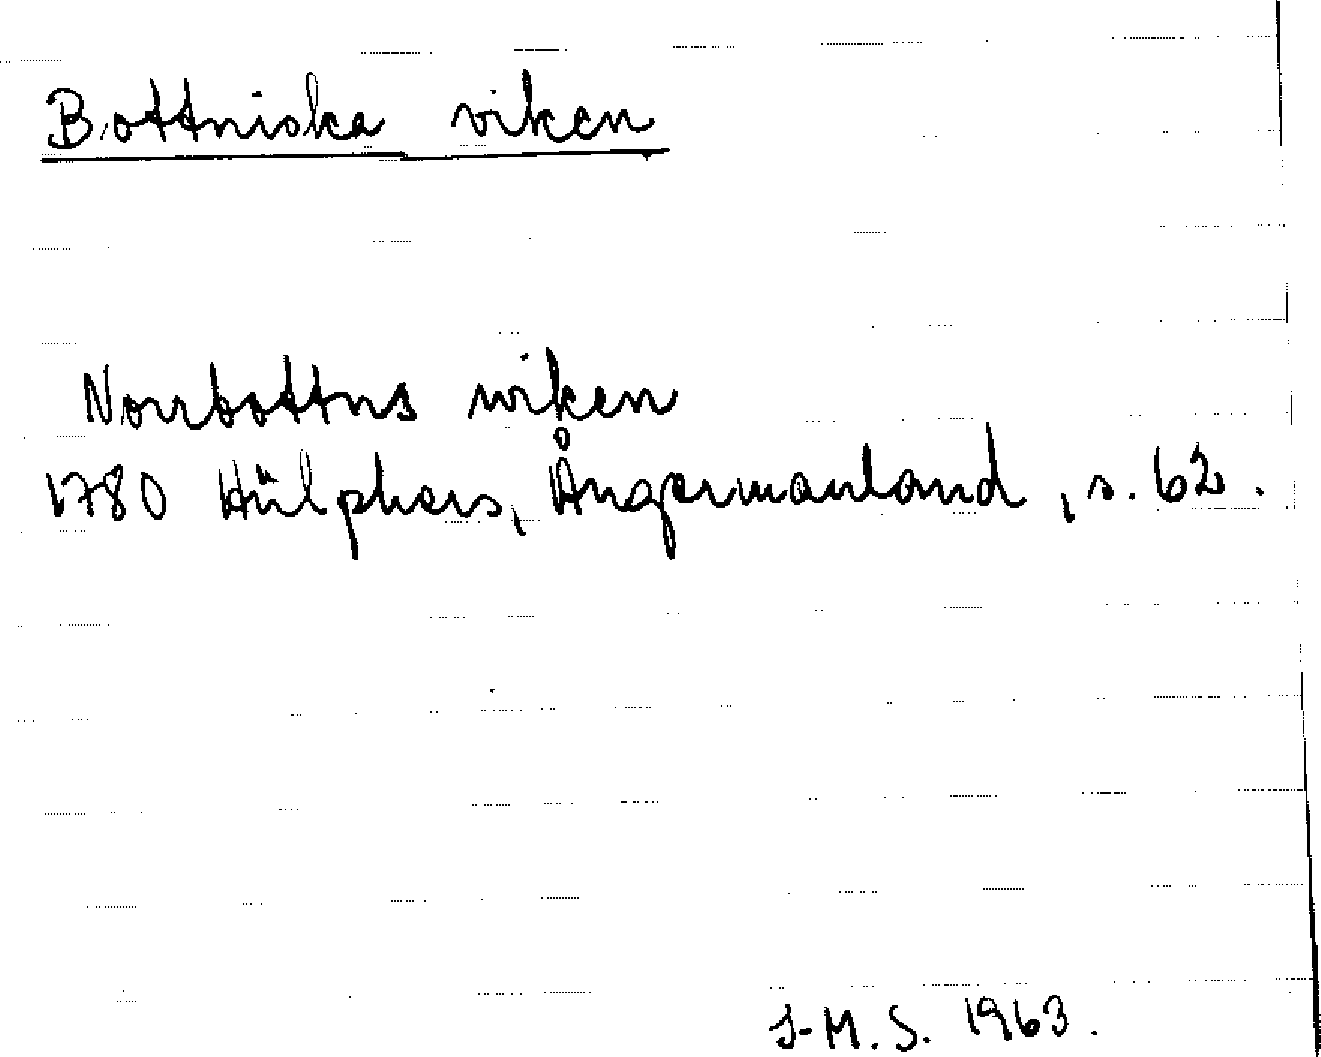 Bottniska viken
Norrbottns wiken
1780 Hülphers, Ångermanland, s. 62.
J-M. S. 1963.